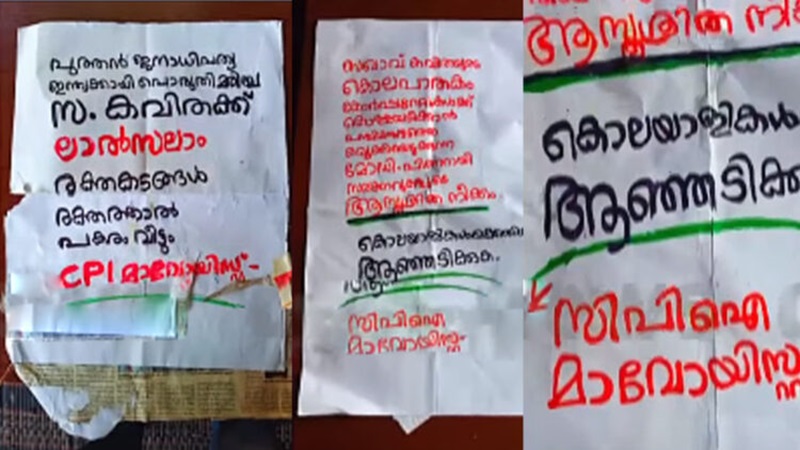 പുത്തൻ ജനാധിപത്യ
ഇന്ത്യക്കായി പൊരുതി മരിച്ച
സ. കവിതക്ക്
ലാൽസലാം
രക്തകടങ്ങൾ
രക്തത്താൽ
പകരം വീട്ടും
CPI മാവോയിസ്റ്റ് -
സഖാവ് കവിതയുടെ
കൊലപാതകം
മോഡി-പിണറായി
ആസൂത്രിത നീക്കം
കൊലയാളികൾക്കെതിരെ
ആഞ്ഞടിക്കുക.
സിപിഐ
മാവോയിസ്റ്റ്
ആസൂത്രിത നീക്ക
കൊലയാളികൾ
ആഞ്ഞടിക്കു
സിപിഐ
മാവോയിസ്റ്റ